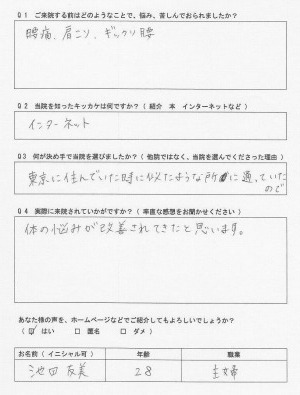 Q1 ご来院する前はどのようなことで、悩み、苦しんでおられましたか？
腰痛、肩こり、ギックリ腰
Q2 当院を知ったキッカケは何ですか？（ 紹介 本 インターネットなど ）
インターネット
Q3 何が決め手で当院を選びましたか？（ 他院ではなく、当院を選んでくださった理由 ）
東京に住んでいた時に似たような所に通っていた
ので
Q4 実際に来院されていかがですか？（ 率直な感想をお聞かせください ）
体の悩みが改善されてきたと思います。
あなた様の声を、ホームページなどでご紹介してもよろしいでしょうか？
（ ☑ はい □ 匿名 □ ダメ ）
お名前（ イニシャル可 ） 年齢 職業
池田 友美 28 主婦